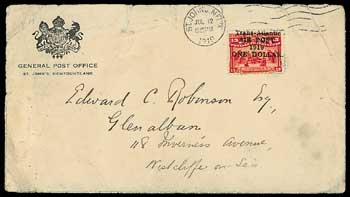 GENERAL POST OFFICE
ST. JOHN'S, NEWFOUNDLAND.
ST. JOHN'S
JUL 12
1919
Trans-Atlantic
AIR POST
1919
ONE DOLLAR
Edward C. Robinson Esq,
Glenalban
48 Inverness Avenue,
Westcliffe on Sea